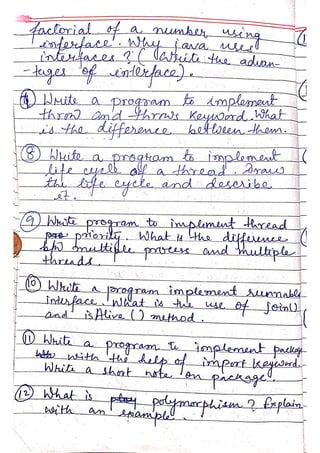 factorial of a number using
interface. Why java uses
interfaces? (Write the advan-
tages of interface).
Write a program to implement
throw and throws keyword. What
is the difference between them.
⑧ Write a program to implement
life cycle of a thread. Draw
the life cycle and describe
it.
⑨ Write program to implement thread
priority. What is the difference
b/w multiple process and multiple
threads.
⑩ Write a program implement runnable
interface. What is the use of join()
and isAlive () method.
⑪ Write a program to implement package
with the help of import keyword.
Write a short note on package.
⑫ What is polymorphism? Explain
with an example.